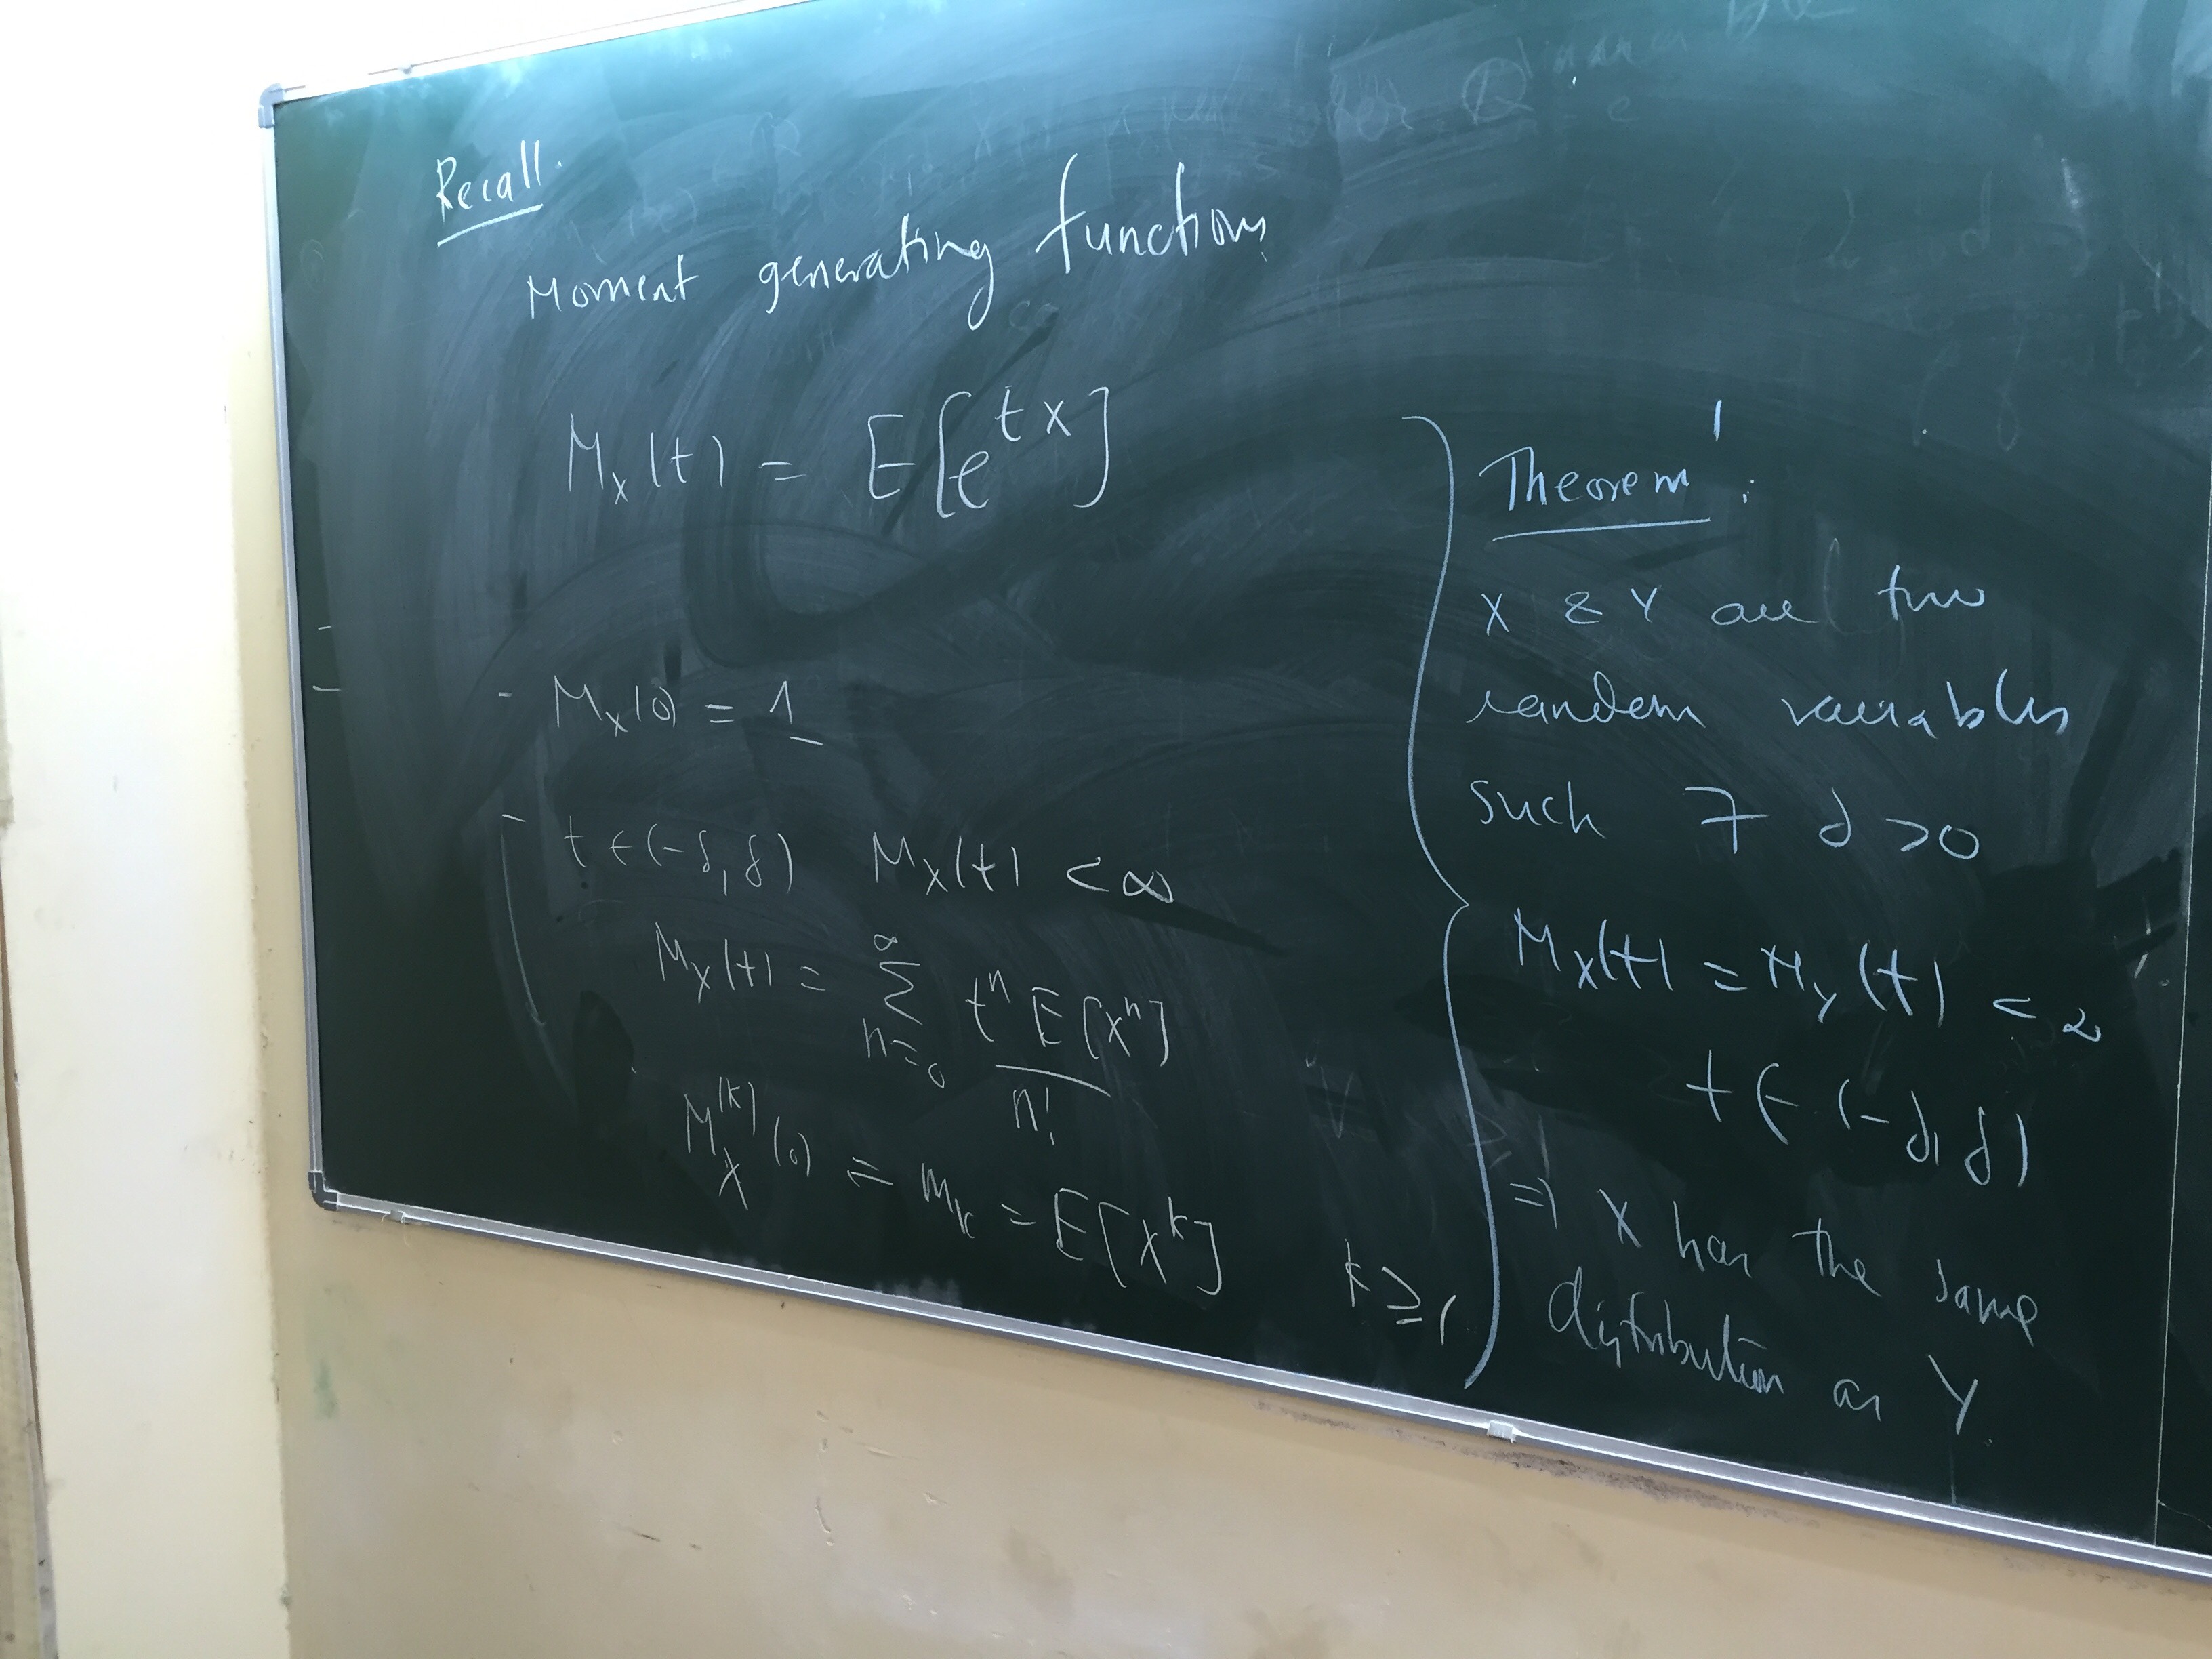 Recall.
Moment generating functions
M_X(t) = E[e^{tX}]
- M_X(0) = 1
- t ∈ (-δ, δ) M_X(t) < ∞
M_X(t) = ∑_{n=0}^{∞} t^n E[X^n] / n!
M_X^{(k)}(0) = m_k = E[X^k] k ≥ 1
Theorem 1:
X & Y are two
random variables
such ∃ δ > 0
M_X(t) = M_Y(t) < ∞
t ∈ (-δ, δ)
⇒ X has the same
distribution as Y.